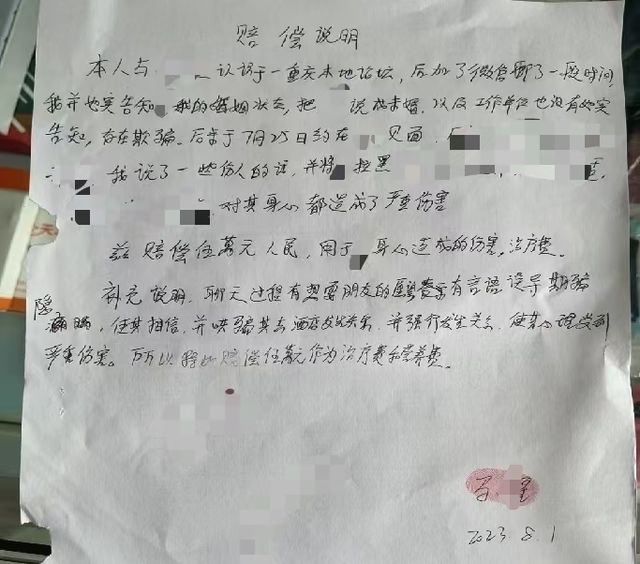 赔偿说明
本人与 认识于一重庆本地论坛，后加了微信聊了一段时间
我并如实告知 我的婚姻状态，把 说成未婚，以及工作单位也没有如实
告知，存在欺骗。后来于7月25日约在 见面，
我说了一些伤人的话，并将 拉黑
对其身心都造成了严重伤害
兹赔偿伍萬元人民，用于 身心造成的伤害，治疗费。
补充说明，聊天过程有想要朋友的 有言语误导期骗
隐瞒，使其相信，并哄骗其去酒店发生关系，并强行发生关系，使其心理受到
严重伤害。所以 赔偿伍萬元作为治疗费和营养费。
2023.8.1